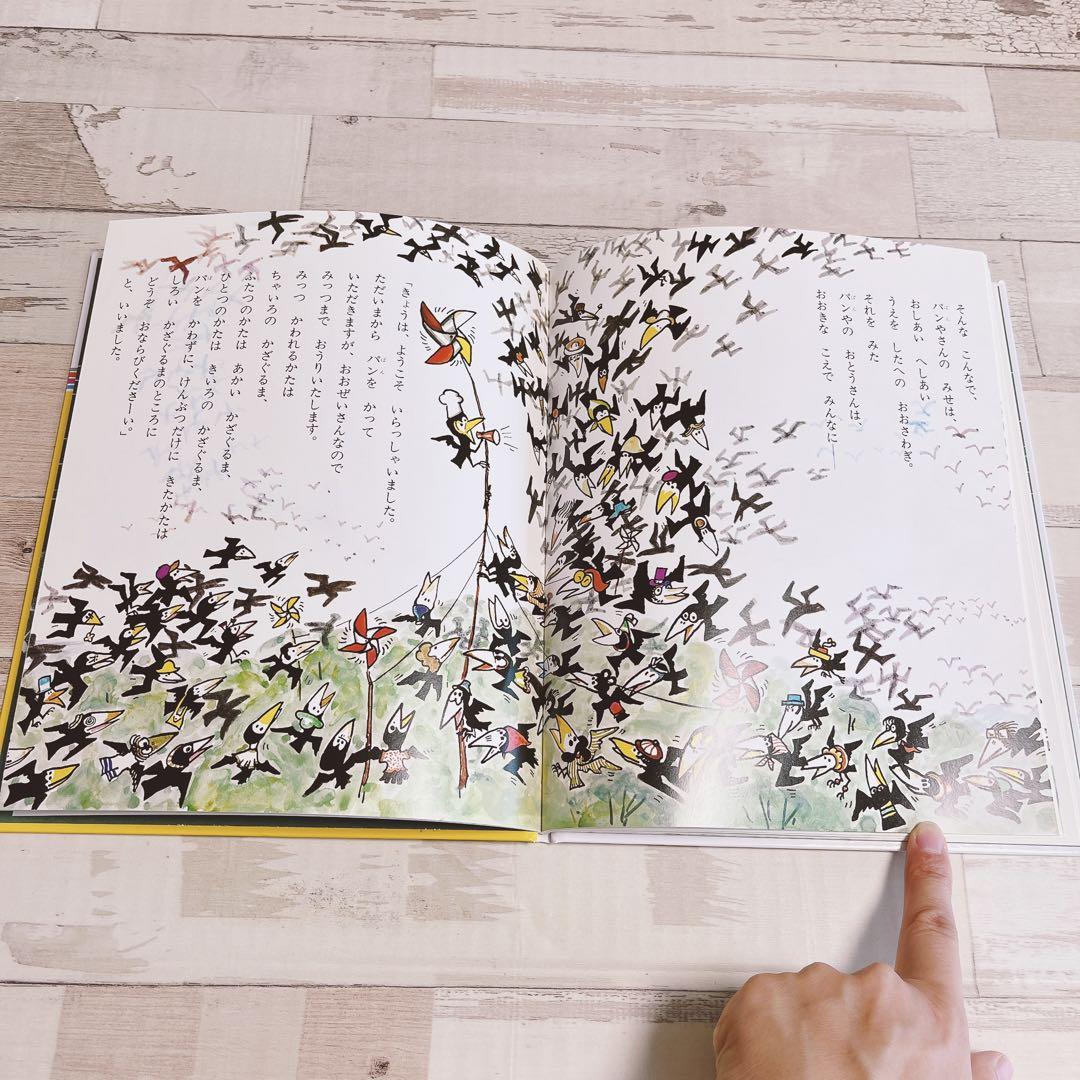 そんな こんなで、
パンやさんの みせは、
おしあい へしあい
うえを したへの おおさわぎ。
それを みた
パンやの おとうさんは、
おおきな こえで みんなに――
「きょうは、ようこそ いらっしゃいました。
ただいまから パンを かって
いただきますが、おおぜいさんなので
みっつまで おうりいたします。
みっつ かわれるかたは
ちゃいろの かざぐるま、
ふたつのかたは あかい かざぐるま、
ひとつのかたは きいろの かざぐるま、
パンを かわずに けんぶつだけに きたかたは
しろい かざぐるまのところに
どうぞ おならびくださーい。」
と、いいました。